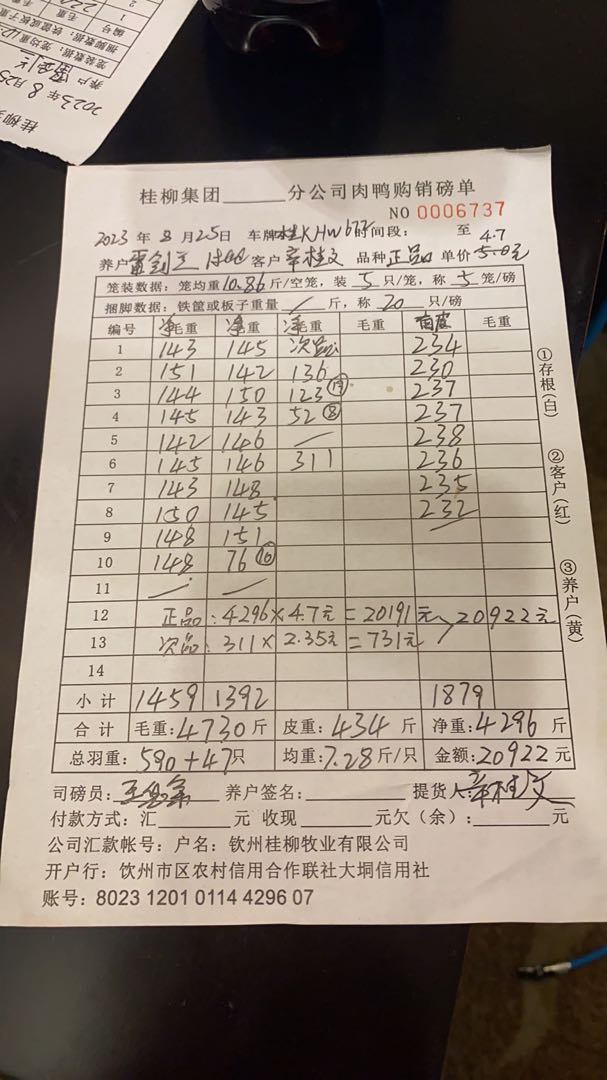 2023年8月25日
桂柳集团______分公司肉鸭购销磅单
NO 0006737
2023年8月25日 车牌: 时间段: 至 4.7
养户: 客户: 辛桂文 品种 正品 单价 5.0元
笼装数据: 笼均重10.86斤/空笼, 装5只/笼, 称5笼/磅
捆脚数据: 铁筐或板子重量/斤, 称20只/磅
编号 净毛重 净毛重 净毛重 毛重 毛重
1 143 145 次品 234
2 151 142 136 230
3 144 150 123 237
4 145 143 52 ⑧ 237
5 142 146 / 238
6 145 146 311 236
7 143 148 235
8 150 145 232
9 148 151
10 148 76 ⑩
11
12 正品: 4296×4.7元=20191元 20922元
13 次品: 311×2.35元=731元
14
小计 1459 1392 1879
合计 毛重: 4730斤 皮重: 434斤 净重: 4296斤
总羽重: 590+47只 均重: 7.28斤/只 金额: 20922元
司磅员: 养户签名: 提货人: 辛桂文
付款方式: 汇______元 收现______元欠(余): ______元
公司汇款帐号: 户名: 钦州桂柳牧业有限公司
开户行: 饮州市区农村信用合作联社大垌信用社
账号: 8023 1201 0114 4296 07
①存根(白) ②客户(红) ③养户(黄)